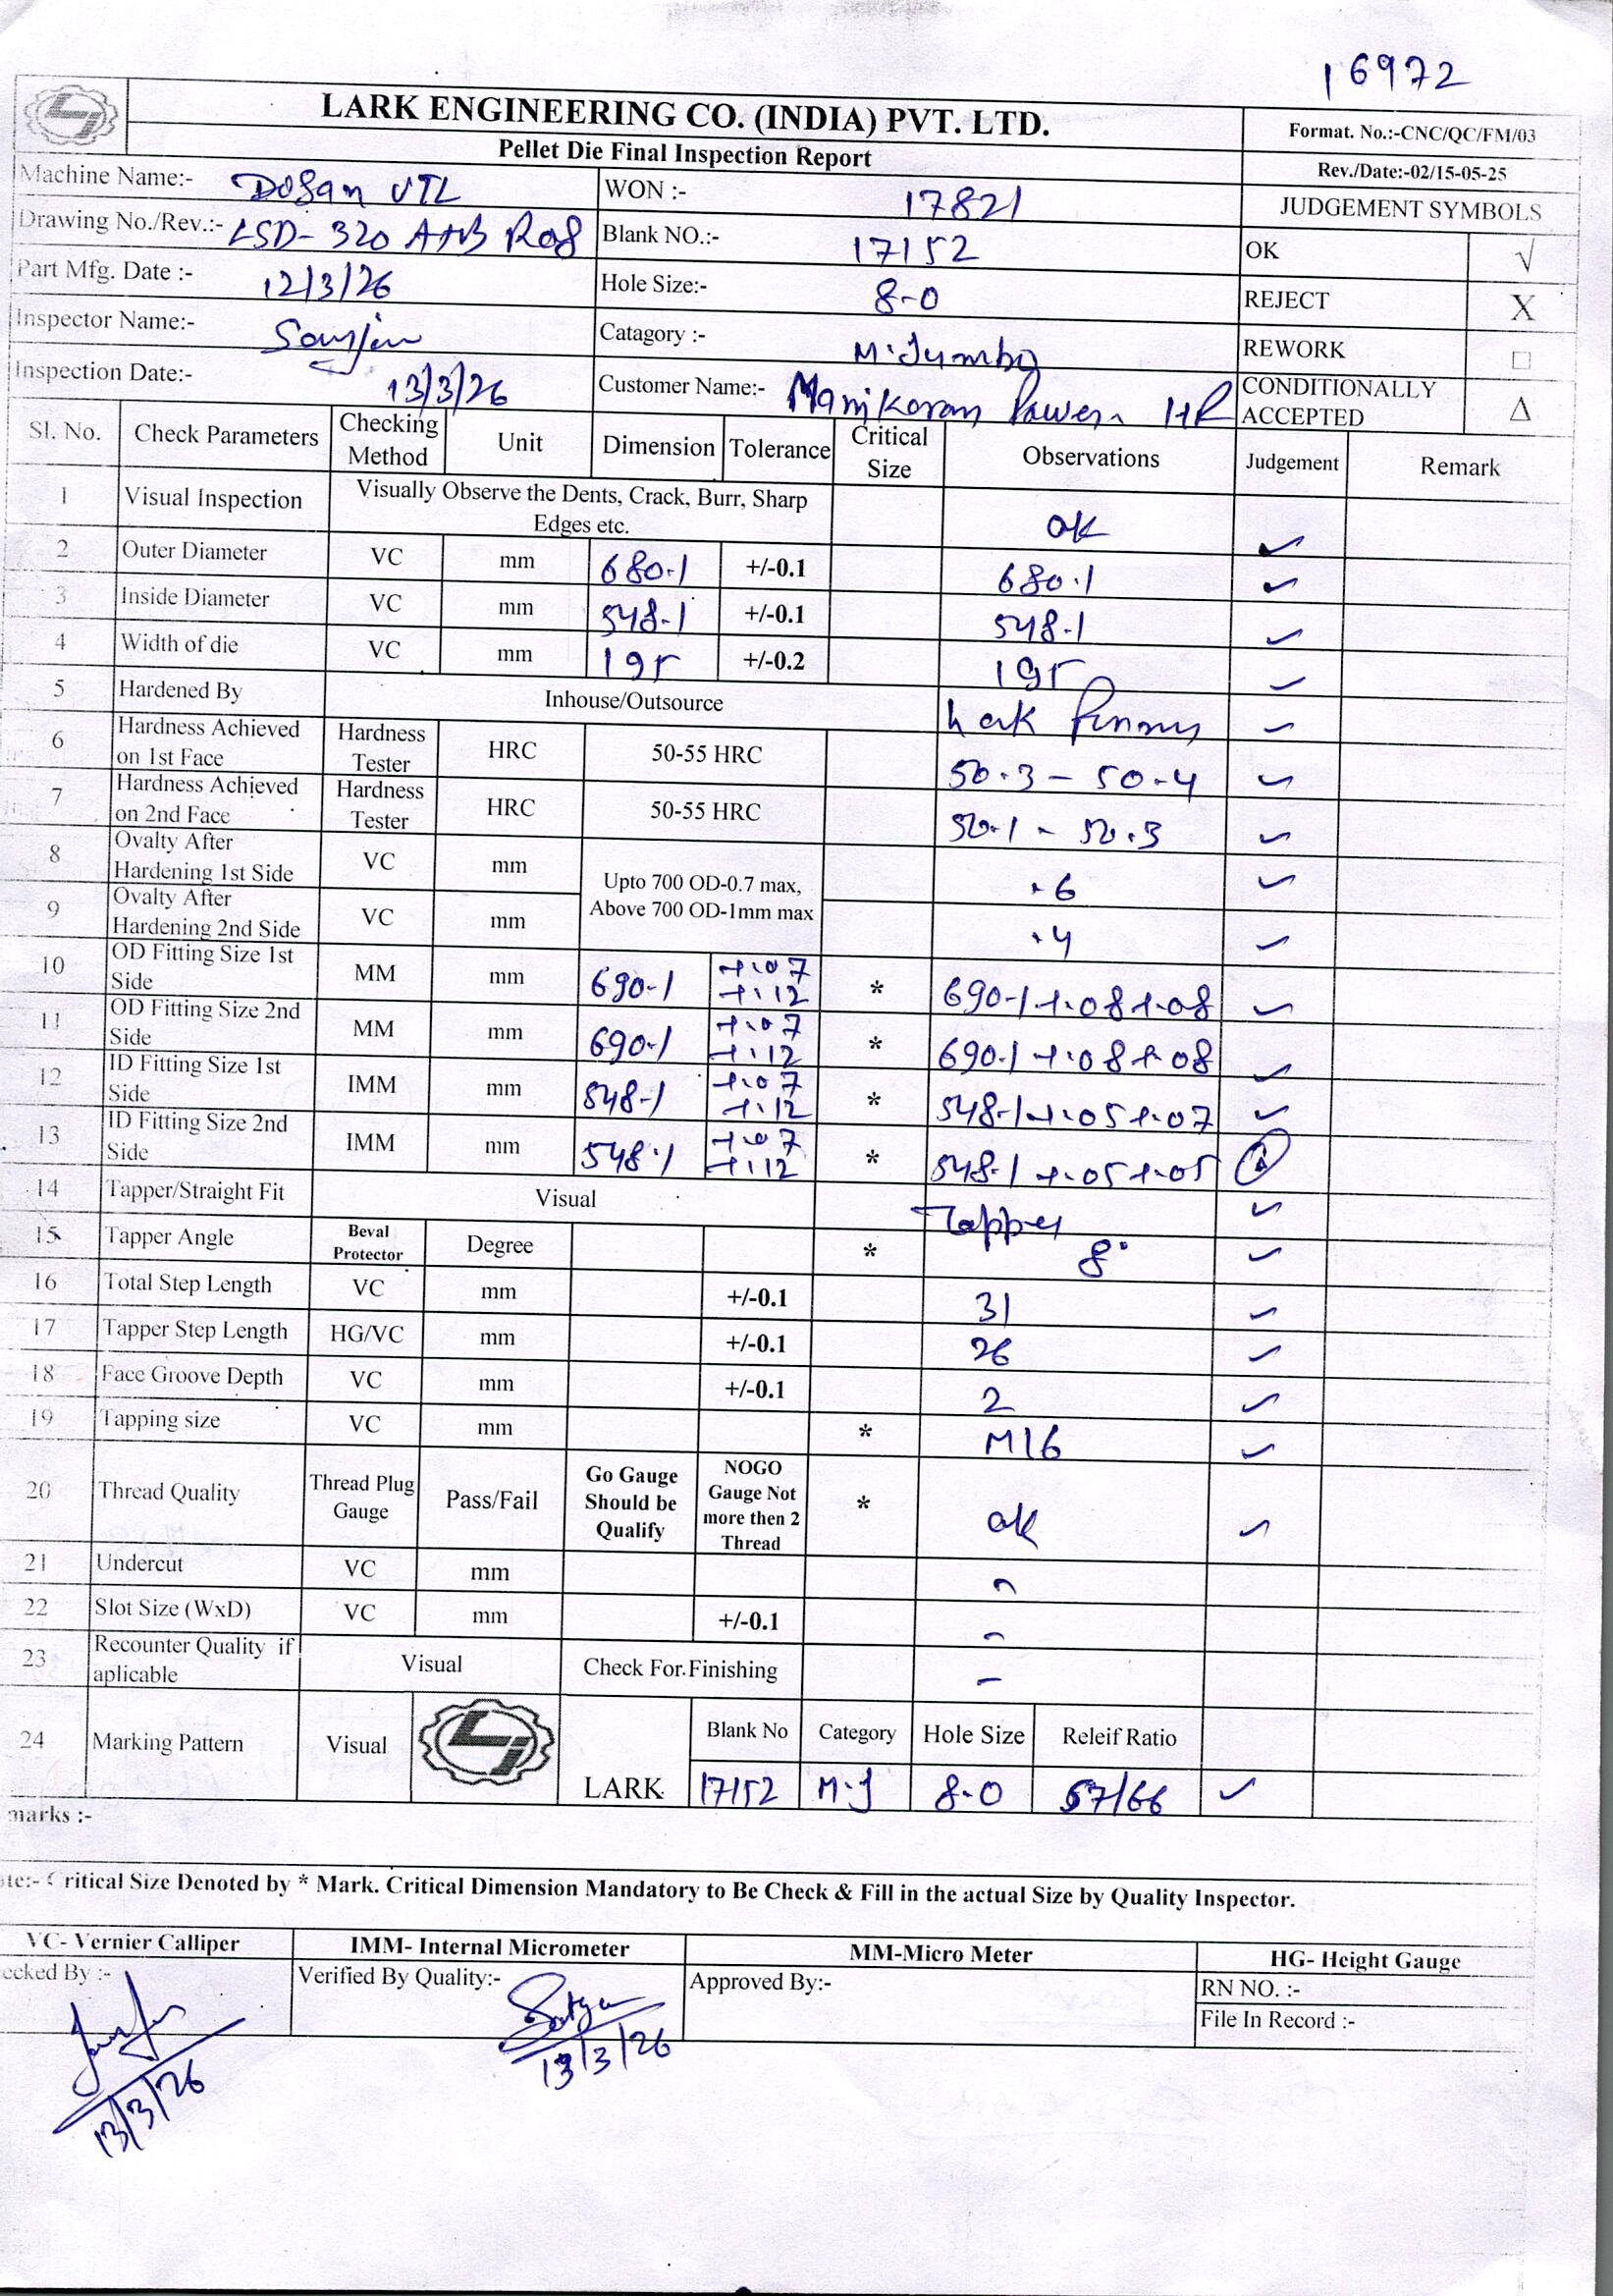 16972
LARK ENGINEERING CO. (INDIA) PVT. LTD.
Format. No.:-CNC/QC/FM/03
Pellet Die Final Inspection Report
Rev./Date:-02/15-05-25
Machine Name:- DOSAN VTL WON :- 17821 JUDGEMENT SYMBOLS
Drawing No./Rev.:- LSD-320 A+B R08 Blank NO.:- 17152 OK √
Part Mfg. Date :- 12/3/26 Hole Size:- 8-0 REJECT X
Inspector Name:- Catagory :- M.Jumbo REWORK □
Inspection Date:- 13/3/26 Customer Name:- Manikaran Power HR CONDITIONALLY ACCEPTED Δ
Sl. No. Check Parameters Checking Method Unit Dimension Tolerance Critical Size Observations Judgement Remark
1 Visual Inspection Visually Observe the Dents, Crack, Burr, Sharp Edges etc. ok ✓
2 Outer Diameter VC mm 680.1 +/-0.1 680.1 ✓
3 Inside Diameter VC mm 548.1 +/-0.1 548.1 ✓
4 Width of die VC mm 195 +/-0.2 195 ✓
5 Hardened By Inhouse/Outsource Lark ✓
6 Hardness Achieved on 1st Face Hardness Tester HRC 50-55 HRC 50.3 - 50.4 ✓
7 Hardness Achieved on 2nd Face Hardness Tester HRC 50-55 HRC 50.1 - 50.3 ✓
8 Ovalty After Hardening 1st Side VC mm Upto 700 OD-0.7 max, Above 700 OD-1mm max .6 ✓
9 Ovalty After Hardening 2nd Side VC mm .4 ✓
10 OD Fitting Size 1st Side MM mm 690.1 +.07 +.12 * 690.1 +.08 +.08 ✓
11 OD Fitting Size 2nd Side MM mm 690.1 +.07 +.12 * 690.1 +.08 +.08 ✓
12 ID Fitting Size 1st Side IMM mm 548.1 +.07 +.12 * 548.1 +.05 +.07 ✓
13 ID Fitting Size 2nd Side IMM mm 548.1 +.07 +.12 * 548.1 +.05 +.05
14 Tapper/Straight Fit Visual Tapper ✓
15 Tapper Angle Beval Protector Degree * 8° ✓
16 Total Step Length VC mm +/-0.1 31 ✓
17 Tapper Step Length HG/VC mm +/-0.1 26 ✓
18 Face Groove Depth VC mm +/-0.1 2 ✓
19 Tapping size VC mm * M16 ✓
20 Thread Quality Thread Plug Gauge Pass/Fail Go Gauge Should be Qualify NOGO Gauge Not more then 2 Thread * ok ✓
21 Undercut VC mm -
22 Slot Size (WxD) VC mm +/-0.1 -
23 Recounter Quality if aplicable Visual Check For Finishing -
24 Marking Pattern Visual LARK Blank No Category Hole Size Releif Ratio
17152 M.J 8-0 57/66 ✓
marks :-
te:- Critical Size Denoted by * Mark. Critical Dimension Mandatory to Be Check & Fill in the actual Size by Quality Inspector.
VC- Vernier Calliper IMM- Internal Micrometer MM-Micro Meter HG- Height Gauge
ecked By :- Verified By Quality:- Approved By:- RN NO. :-
File In Record :-
Satya
13/3/26 13/3/26